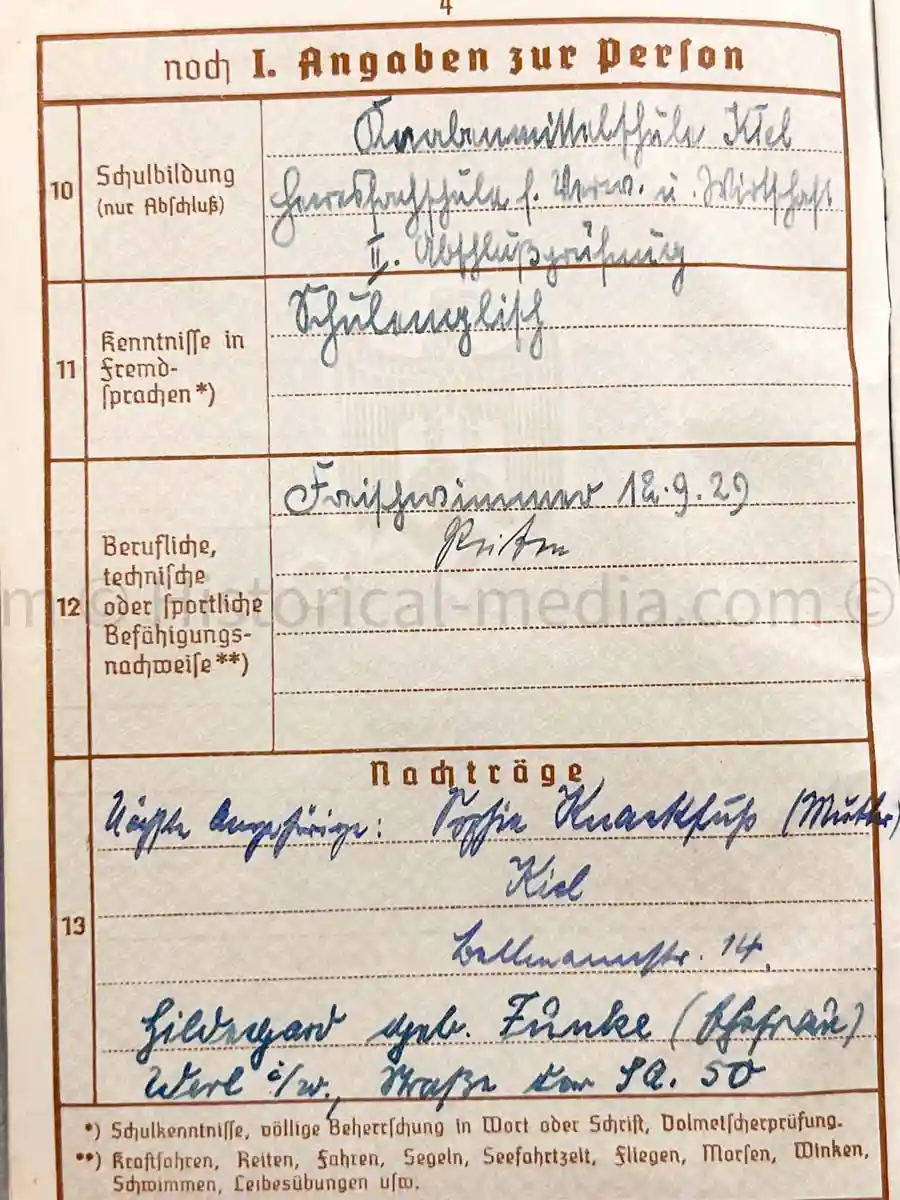 4
noch I. Angaben zur Person
10 Schulbildung (nur Abschluß)
Knabenmittelschule Kiel
Heeresfachschule f. Verw. u. Wirtschaft
II. Abschlußprüfung
11 Kenntnisse in Fremd-
sprachen*)
Schulenglisch
12 Berufliche,
technische
oder sportliche
Befähigungs-
nachweise**)
Freischwimmer 12.9.29
Reiten
m © Historical-media.com ©
Nachträge
13
Nächste Angehörige: Sophie Knackfuß (Mutter)
Kiel
Bellmannstr. 14.
Hildegard geb. Funke (Ehefrau)
Werl i/w., Straße der SA. 50
*) Schulkenntnisse, völlige Beherrschung in Wort oder Schrift, Dolmetscherprüfung.
**) Kraftfahren, Reiten, Fahren, Segeln, Seefahrtzeit, Fliegen, Morsen, Winken,
Schwimmen, Leibesübungen usw.